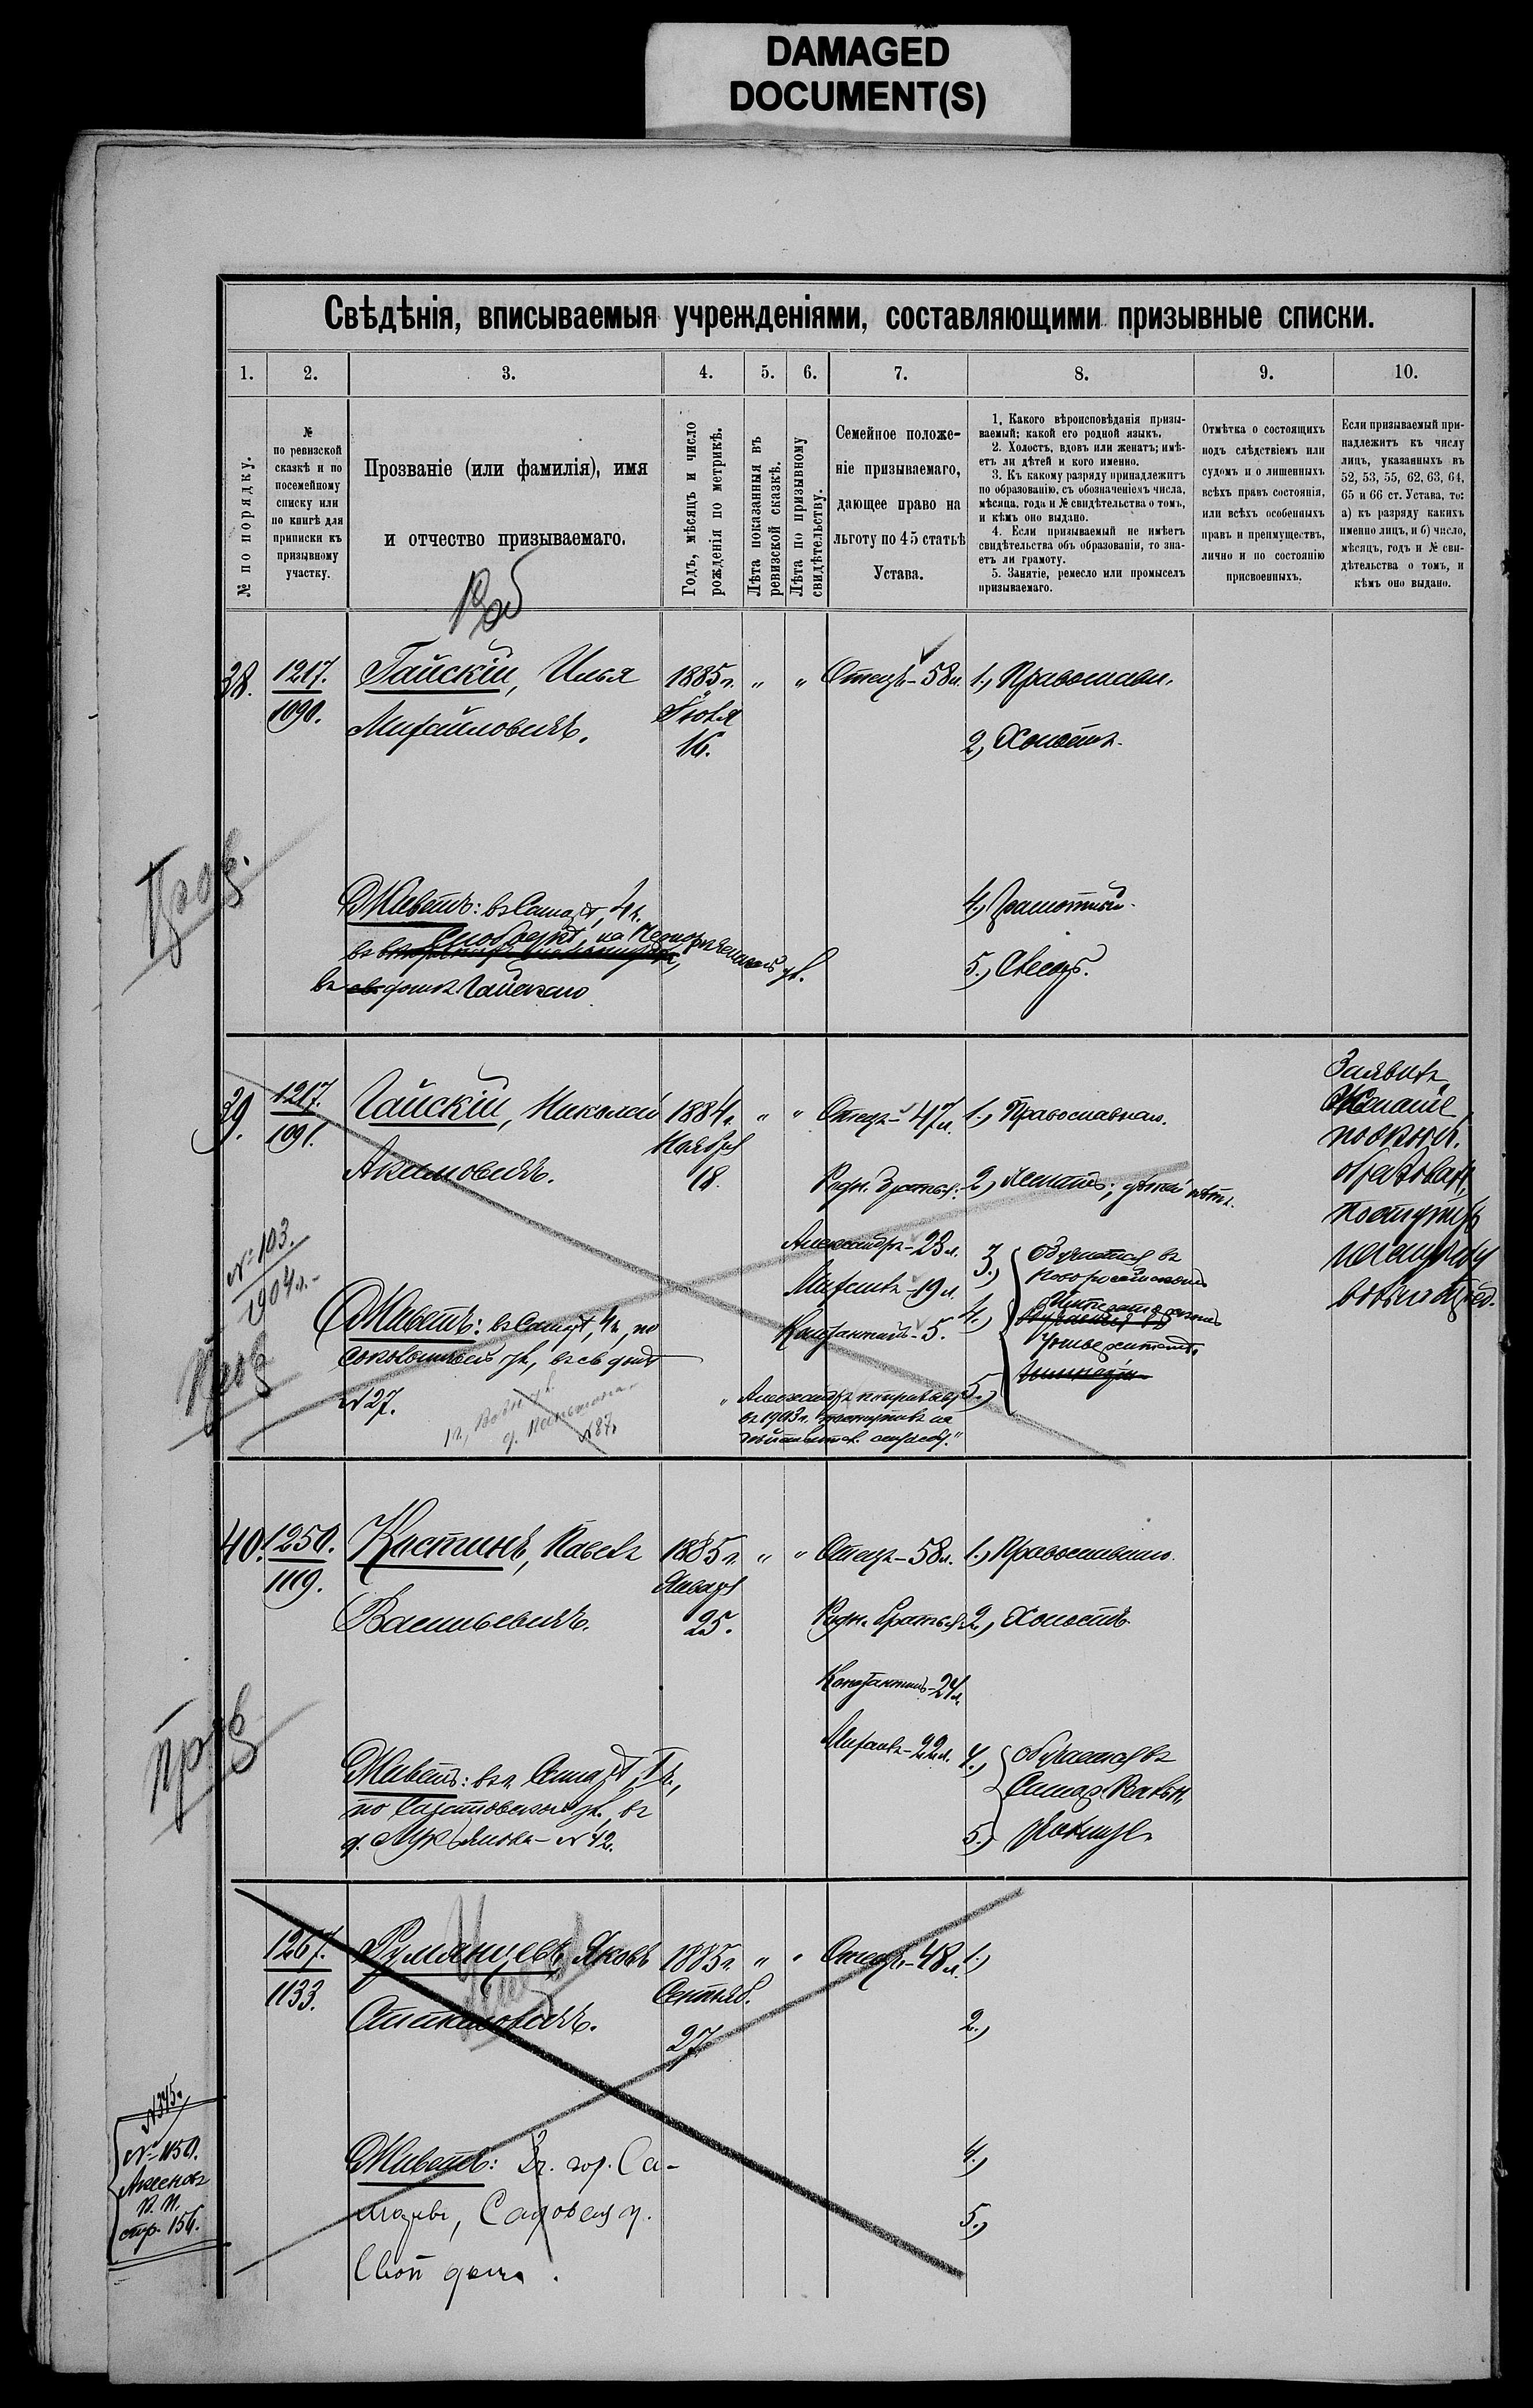 DAMAGED
DOCUMENT(S)
Свѣдѣнія, вписываемыя учрежденіями, составляющими призывные списки.
1. 2. 3. 4. 5. 6. 7. 8. 9. 10.
№ по порядку.
№
по ревизской
сказкѣ и по
посемейному
списку или
по книгѣ для
приписки къ
призывному
участку.
Прозваніе (или фамилія), имя
и отчество призываемаго.
Годъ, мѣсяцъ и число
рожденія по метрикѣ.
Лѣта показанныя въ
ревизской сказкѣ.
Лѣта по призывному
свидѣтельству.
Семейное положе-
ніе призываемаго,
дающее право на
льготу по 45 статьѣ
Устава.
1. Какого вѣроисповѣданія призы-
ваемый; какой его родной языкъ.
2. Холостъ, вдовъ или женатъ; имѣ-
етъ ли дѣтей и кого именно.
3. Къ какому разряду принадлежитъ
по образованію, съ обозначеніемъ числа,
мѣсяца, года и № свидѣтельства о томъ,
и кѣмъ оно выдано.
4. Если призываемый не имѣетъ
свидѣтельства объ образованіи, то зна-
етъ ли грамоту.
5. Занятіе, ремесло или промыселъ
призываемаго.
Отмѣтка о состоящихъ
подъ слѣдствіемъ или
судомъ и о лишенныхъ
всѣхъ правъ состоянія,
или всѣхъ особенныхъ
правъ и преимуществъ,
лично и по состоянію
присвоенныхъ.
Если призываемый при-
надлежитъ къ числу
лицъ, указанныхъ въ
52, 53, 55, 62, 63, 64,
65 и 66 ст. Устава, то:
а) къ разряду какихъ
именно лицъ, и б) число,
мѣсяцъ, годъ и № сви-
дѣтельства о томъ, и
кѣмъ оно выдано.
38. 1217. Гайскій, Илья 1885 г. " " Отецъ - 58 л. 1., Православн.
1090. Михайловичъ. Іюля
16. 2., Холостъ.
Живетъ: въ Самарѣ, 4 ч. 4., Грамотный.
5., Слесарь.
въ домѣ Гайскаго
39. 1217. Гайскій, Николай 1884 г. " " Отецъ - 47 л. 1., Православнаго.
1091. Акимовичъ. Ноября
18. Родн. братья: 2., Женатъ; дѣтей нѣтъ.
Заявилъ
желаніе
по оконч.
образован.
поступить
Александръ - 23 л. 3., обучается въ
Новороссійскомъ
Михаилъ - 19 л. 4., Императорскомъ
Университетѣ
Константинъ - 5. 5.,
№ 103.
1904 г.
Живетъ: въ Самарѣ, 4 ч., по
ул., въ св. домѣ
№ 27.
№ 87.
Александръ
въ 1903 г. поступилъ на
40. 1250. Костинъ, Павелъ 1885 г. " " Отецъ - 58 л. 1., Православнаго.
1119. Васильевичъ. Января
25. Родн. братья: 2., Холостъ.
Константинъ - 24 л.
Михаилъ - 22 л. 4., обучается въ
Самар. Реальн.
5., училищѣ
Живетъ: въ г. Самарѣ, 1 ч.,
по Саратовской ул., въ
д. № 42.
1267. Румянцевъ Яковъ 1885 г. " " Отецъ - 48 л. 1.,
1133. Сентяб.
27 2.,
4.,
5.,
Живетъ: 3 ч. гор. Са-
мары, Садовая у.
Свой домъ.
№ 345.
№ 1150.
Аксеновъ
П. И.
стр. 156.